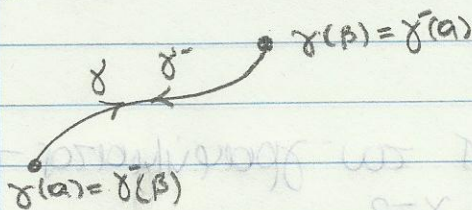 γ(β) = γ⁻(α)
γ γ⁻
γ(α) = γ⁻(β)